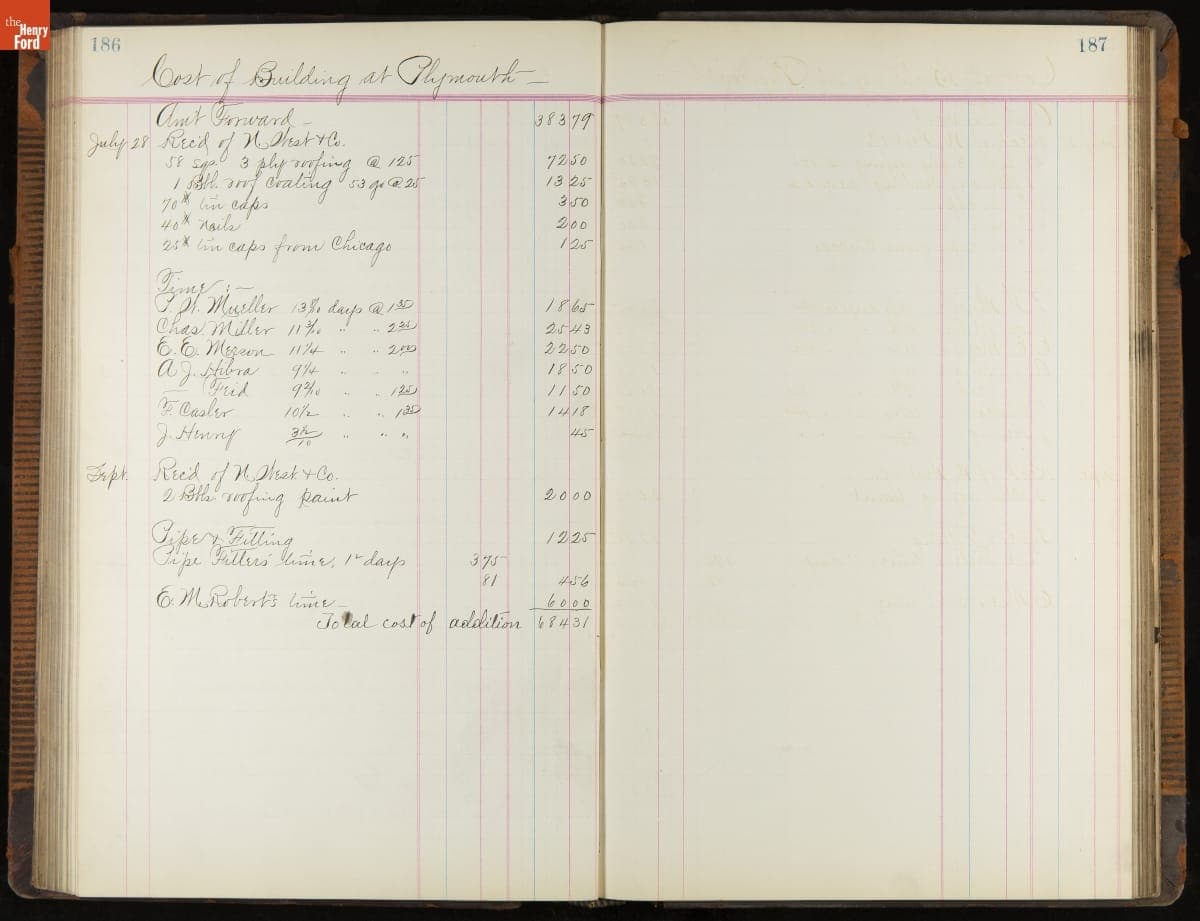 the Henry Ford
186
187
Cost of Building at Plymouth —
Amt Forward — 383 79
July 28 Rec'd of N. West & Co.
58 sqs. 3 ply roofing @ 125 72 50
1 Bbl. roof coating 53 gs @ 25 13 25
70# tin caps 3 50
40# nails 2 00
25# tin caps from Chicago 1 25
Time :—
Mueller days @ 1 35 18 65
Chas. Miller 11 3/10 " " 2 25 25 43
E. E. 11 1/4 " " 2 00 22 50
A. J. Hibra 9 1/4 " " " 18 50
— Feid 9 2/10 " " 1 25 11 50
F. Casler 10 1/2 " " 1 35 14 18
J. Henry " " " 45
Sept. Rec'd of N. West & Co.
2 Bbls. roofing paint 20 00
Pipe & Fitting 12 25
Pipe Fitters time, days 3 75
81 4 56
E. M. Robert's time — 60 00
Total cost of addition 684 31